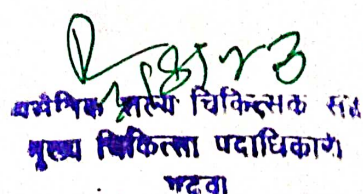 असैनिक शल्य चिकित्सक सह
मुख्य चिकित्सा पदाधिकारी
गढ़वा